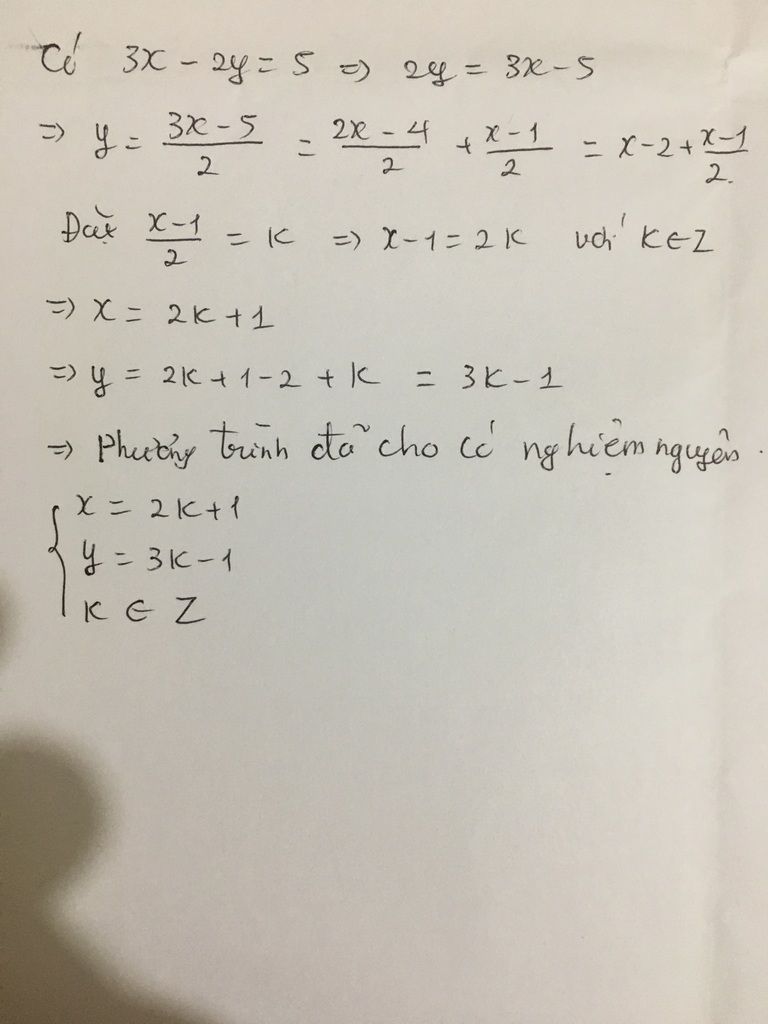 Có 3x - 2y = 5 => 2y = 3x - 5
=> y = (3x - 5)/2 = (2x - 4)/2 + (x - 1)/2 = x - 2 + (x - 1)/2.
Đặt (x - 1)/2 = K => x - 1 = 2K với K ∈ Z
=> x = 2K + 1
=> y = 2K + 1 - 2 + K = 3K - 1
=> Phương trình đã cho có nghiệm nguyên.
{ x = 2K + 1
y = 3K - 1
K ∈ Z